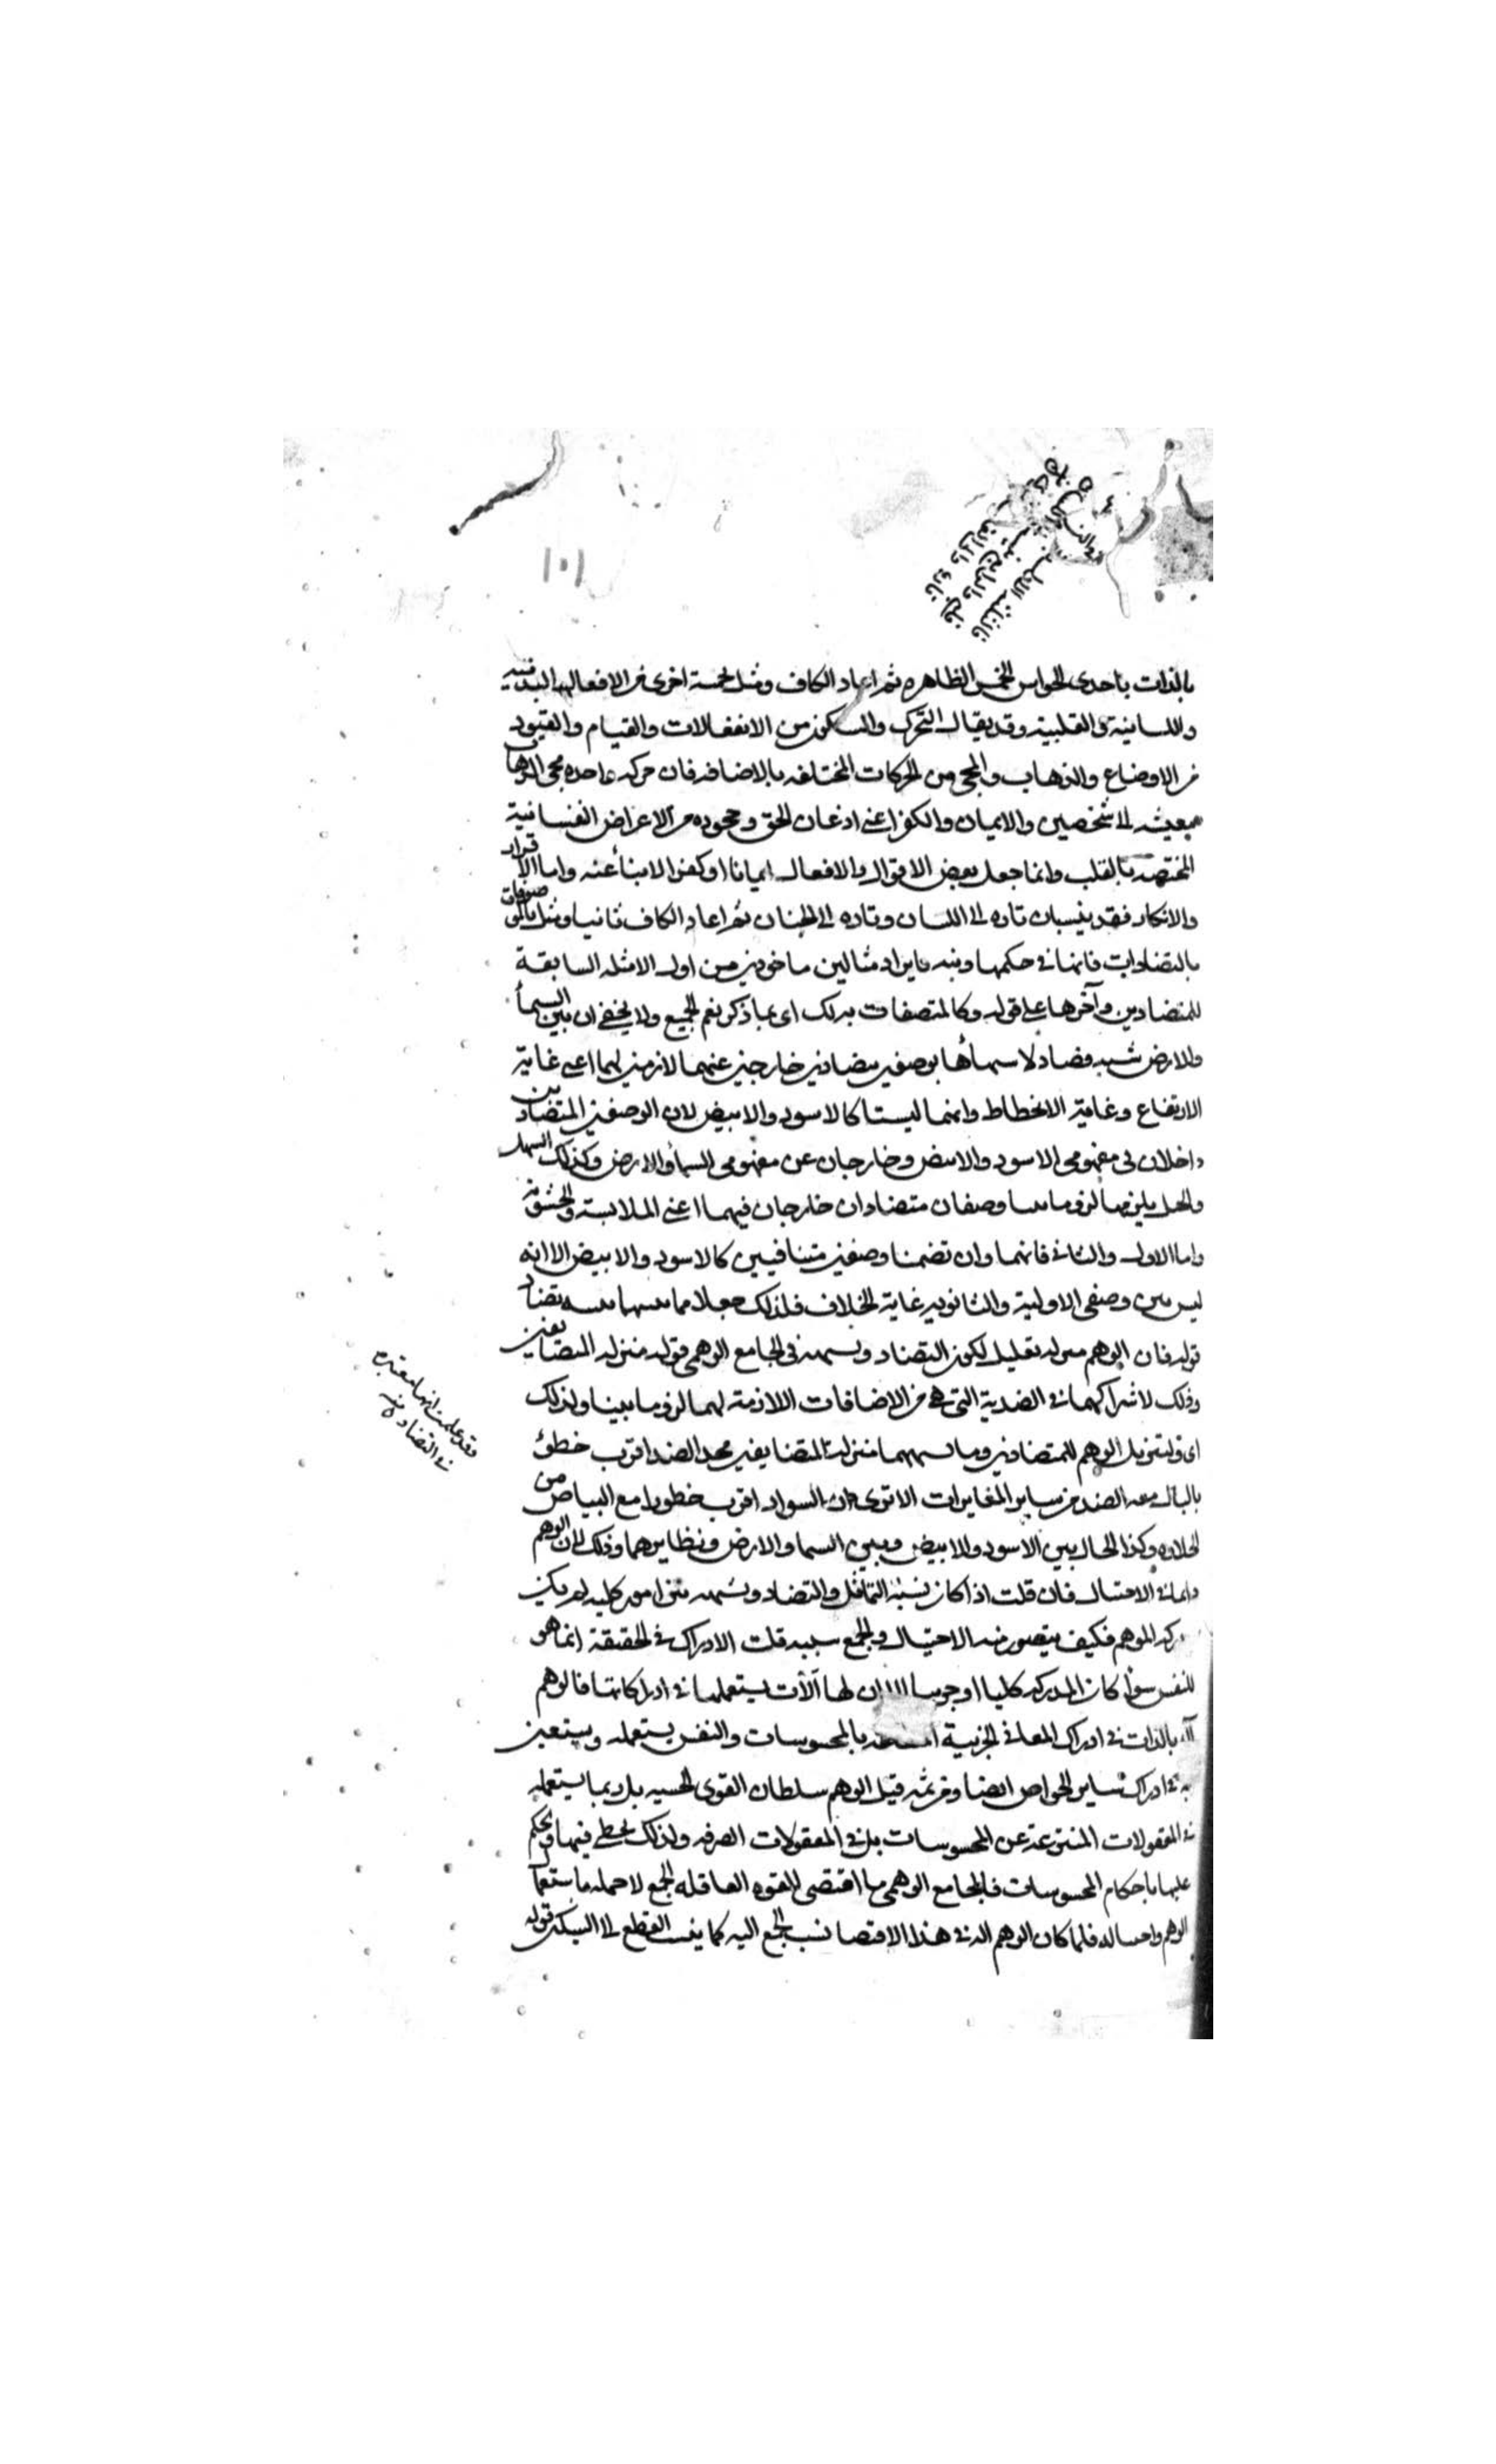 بالذات باحدى الحواس الخمس الظاهره ثم اعاد الكاف ومثل بخمسة اخرى من الافعال البدنية
واللسانية والقلبية وقد يقال التحرك والسكون من الانفعالات والقيام والقعود
من الاوضاع والذهاب والمجى من الحركات المختلفه بالاضافه فان حركه واحده مجى وذهاب
لشخصين والايمان والكفر اعنى اذعان الحق وجحوده من الاعراض النفسانية
المختصه بالقلب وانما جعل بعض الاقوال والافعال ايمانا او كفرا لانبائه عنه واما الاقرار
والانكار فقد ينسبان تاره الى اللسان وتاره الى الجنان ثم اعاد الكاف ثانيا ومثل بالموصوفات
بالمتضادات فانها فى حكمها ونبه بايراد مثالين ماخوذين من اول الامثله السابقة
للمتضادين وآخرها على قوله وكالمتصفات بذلك اى بما ذكر نعم الجميع ولا يخفى ان بين السماء
والارض شبه تضاد لاتصافهما بوصفين متضادين خارجين عنهما لازمين لهما اعنى غاية
الارتفاع وغاية الانحطاط وانهما ليستا كالاسود والابيض لان الوصفين المتضادين
داخلان فى مفهومى الاسود والابيض وخارجان عن مفهومى السماء والارض وكذلك السهل
والجبل يلزمهما لزوما بينا وصفان متضادان خارجان فيهما اعنى الملاسة والخشونة
واما الاول والثانى فانهما وان تضمنا وصفين متنافيين كالاسود والابيض الا انه
ليس بين وصفى الاولية والثانوية غاية الخلاف فلذلك جعلا مما بينهما شبه تضاد
قوله فان الوهم ينزله تعليل لكون التضاد وشبهه فى الجامع الوهمى قوله منزله المتضايفين
وذلك لاشتراكهما فى الضدية التى هى من الاضافات اللازمة لهما لزوما بينا ولذلك
اى ولتنزيل الوهم للمتضادين وما يشبههما منزلة المتضايفين تجد الضد اقرب خطورا
بالبال مع الضد من ساير المغايرات الا ترى ان السواد اقرب خطورا مع البياض من
الحلاوه وكذا الحال بين الاسود والابيض وبين السما والارض ونظايرهما وذلك لان الوهم
دايما فى الاحتيال فان قلت اذا كان شبه التماثل والتضاد وشبهه من امور كليه لم يكن
يدركه الوهم فكيف يتصور منه الاحتيال والجمع بسببه قلت الادراك فى الحقيقة انما هو
للنفس سواء كان المدرك كليا او جزييا الا ان لها آلات يستعملها فى ادراكاتها فالوهم
آلة بالذات فى ادراك المعانى الجزيية بالمحسوسات والنفس يستعمله ويستعين
به فى ادراك ساير الحواس ايضا ومن ثمه قيل الوهم سلطان القوى الحسيه بل ربما يستعمله
فى المعقولات المنتزعة عن المحسوسات بل فى المعقولات الصرفه ولذلك يخطى فيها ويحكم
عليها باحكام المحسوسات فالجامع الوهمى ما اقتضى للقوه العاقله الجمع لاجله باستعمال
الوهم واحتياله فلما كان الوهم آله فى هذا الاقتضا نسب الجمع اليه كما ينسب القطع الى السكين قوله
فقد علمت انها معتبره
فى التضاد منه
١٠١